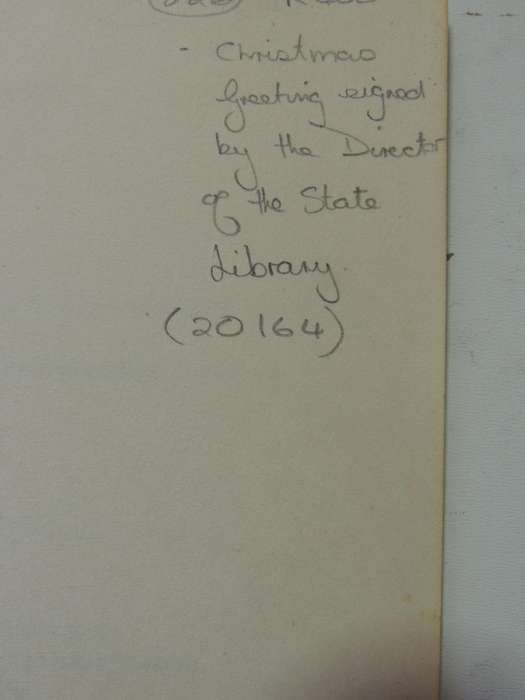 - Christmas
Greeting signed
by the Director
of the State
Library.
(20164)